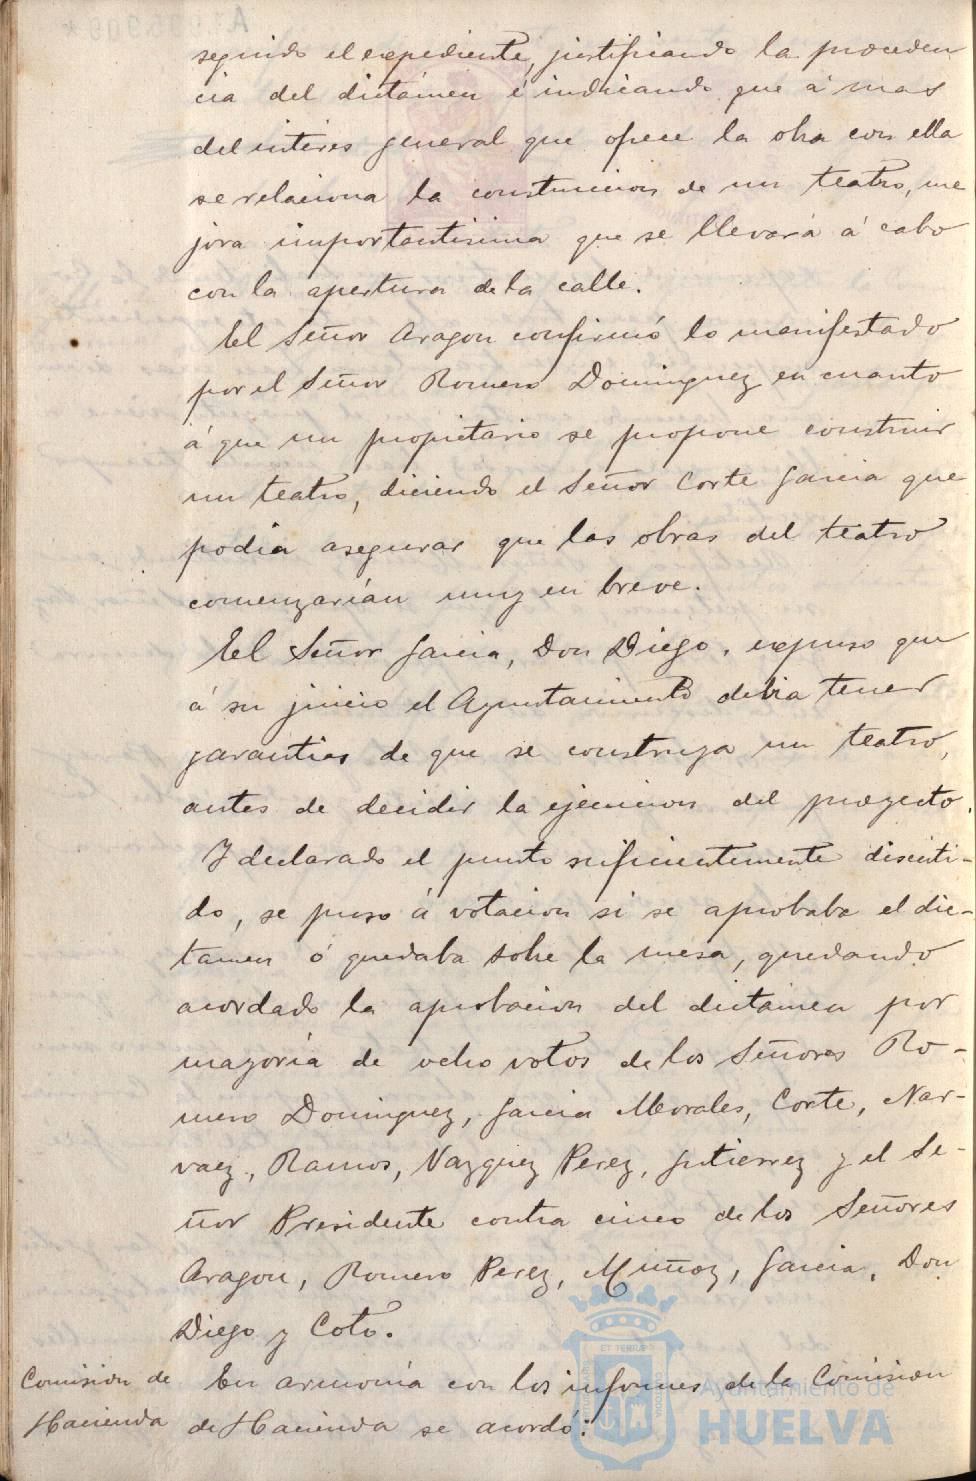 seguido el expediente, justificando la proceden
cia del dictámen é indicando que á mas
del interes general que ofrece la obra con ella
se relaciona la construccion de un teatro, me
jora importantisima que se llevará á cabo
con la apertura de la calle.
El Señor Aragon confirmó lo manifestado
por el Señor Romero Dominguez en cuanto
á que un propietario se propone construir
un teatro, diciendo el Señor Corte Garcia que
podia asegurar que las obras del teatro
comenzarían muy en breve.
El Señor Garcia, Don Diego, expuso que
á su juicio el Ayuntamiento debia tener
garantias de que se construya un teatro,
antes de decidir la ejecucion del proyecto.
Y declarado el punto suficientemente discuti-
do, se puso á votacion si se aprobaba el dic-
tamen ó quedaba sobre la mesa, quedando
acordado la aprobacion del dictamen por
mayoría de ocho votos de los Señores Ro-
mero Dominguez, Garcia Morales, Corte, Nar-
vaez, Ramos, Vazquez Perez, Gutierrez y el Se-
ñor Presidente contra cinco de los Señores
Aragon, Romero Perez, Muñoz, Garcia, Don
Diego y Coto.
Comision de
Hacienda
En armonía con los informes de la Comision
de Hacienda se acordó:
Ayuntamiento de
HUELVA